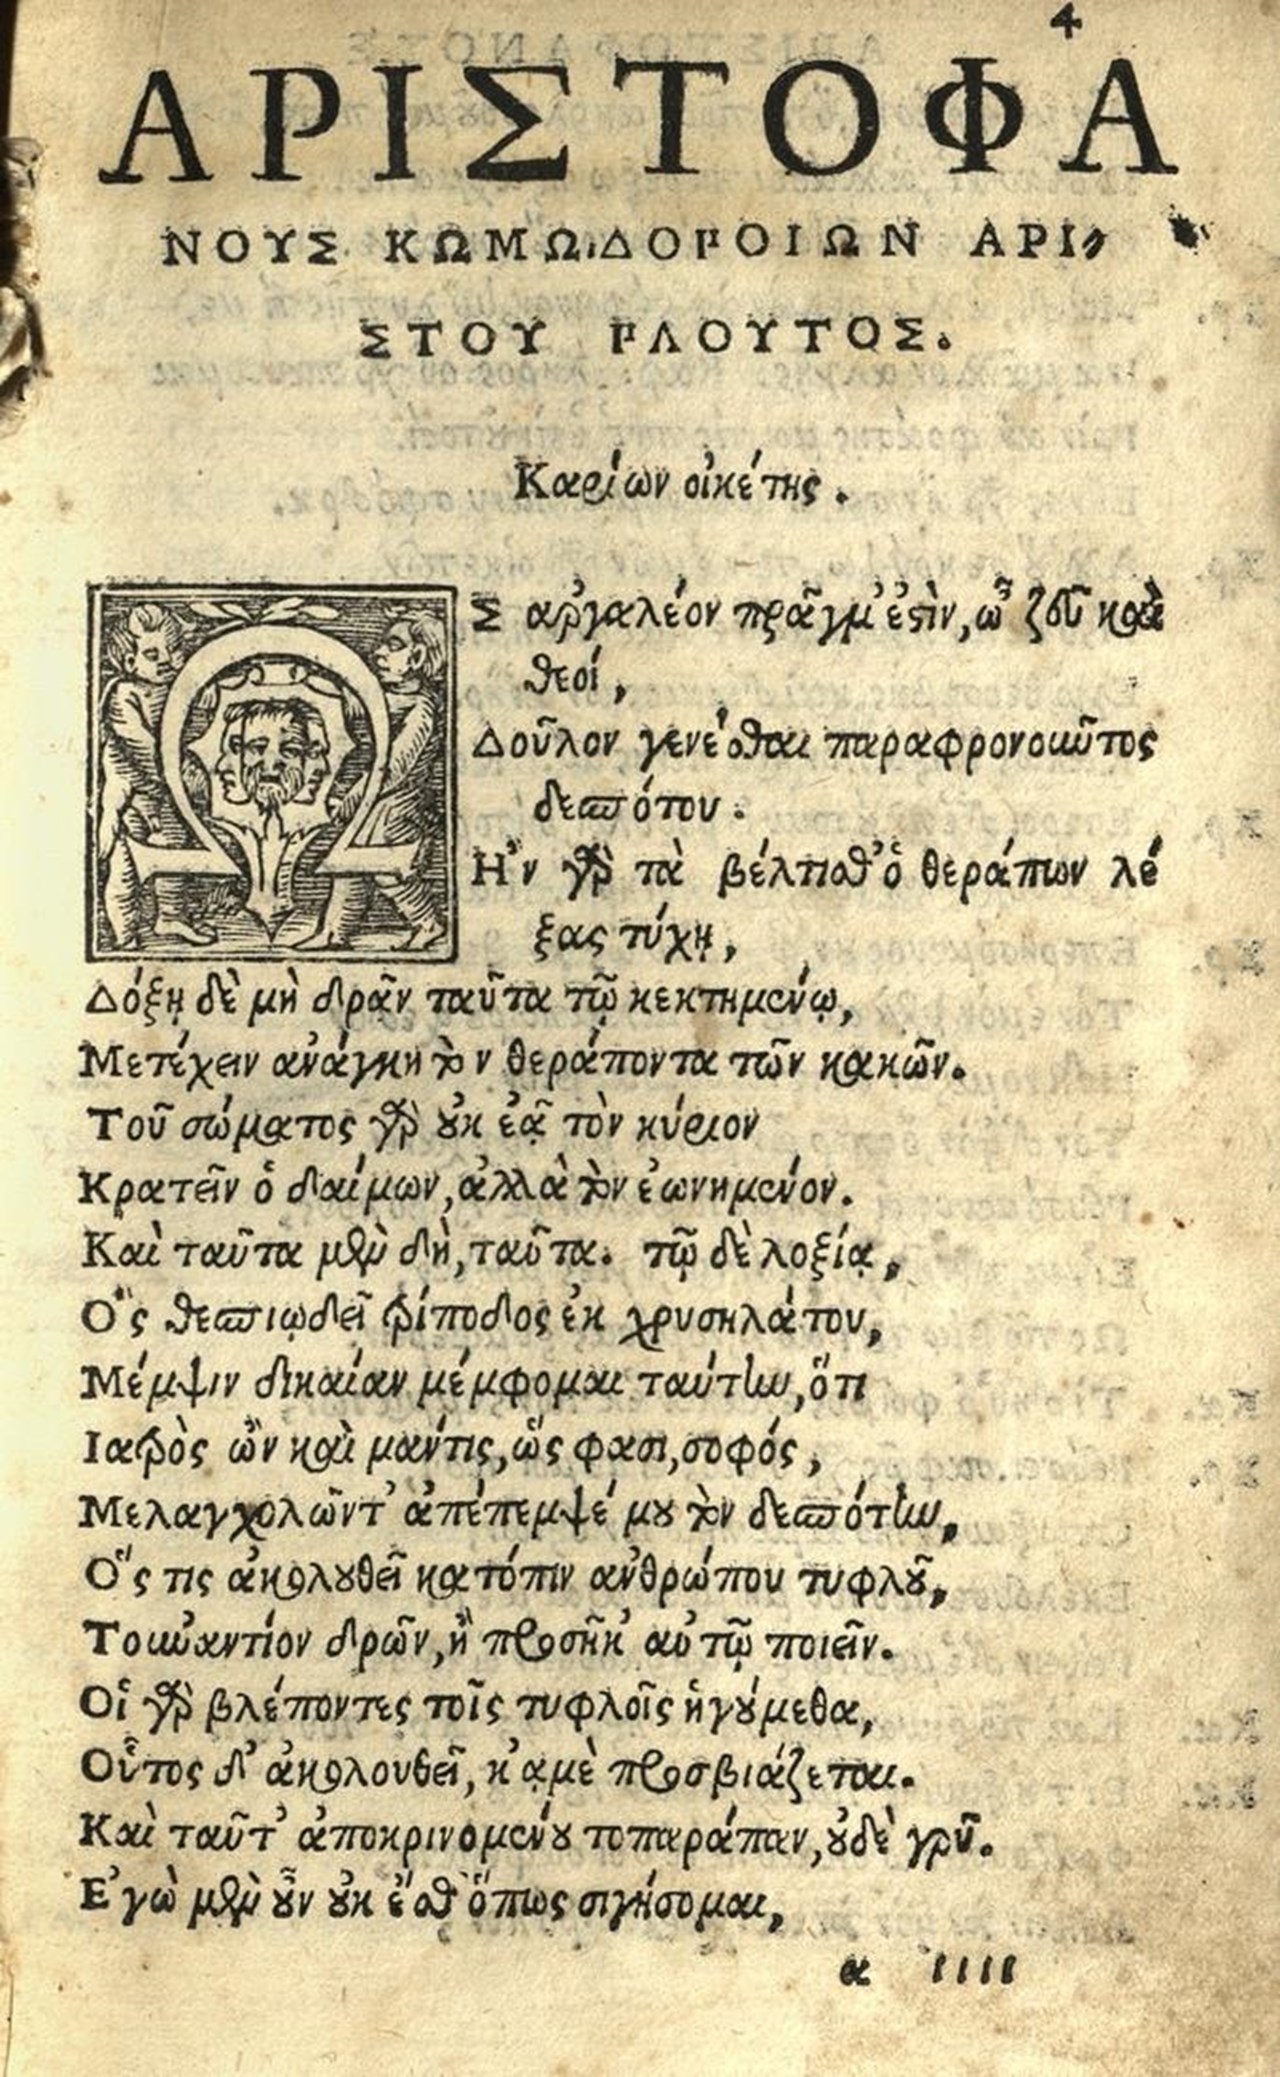 4
ΑΡΙΣΤΟΦΑ
ΝΟΥΣ ΚΩΜΩΔΟΡΟΙΩΝ ΑΡΙ-
ΣΤΟΥ ΡΛΟΥΤΟΣ.
Καρίων οἰκέτης.
ΩΣ ἀργαλέον πρᾶγμ' ἐστὶν, ὦ ζεῦ καὶ
θεοί,
Δοῦλον γενέσθαι παραφρονοιῦτος
δεσπότου.
Ἢν γὰρ τὰ βέλτισθ' ὁ θεράπων λέ
ξας τύχῃ,
Δόξῃ δὲ μὴ δρᾶν ταῦτα τῷ κεκτημένῳ,
Μετέχειν ἀνάγκη τὸν θεράποντα τῶν κακῶν.
Τοῦ σώματος γὰρ οὐκ ἐᾷ τὸν κύριον
Κρατεῖν ὁ δαίμων, ἀλλὰ τὸν ἐωνημένον.
Καὶ ταῦτα μὲν δὴ, ταῦτα. τῷ δὲ λοξίᾳ,
Ὃς θεσπιῳδεῖ τρίποδος ἐκ χρυσηλάτου,
Μέμψιν δικαίαν μέμφομαι ταύτην, ὅτι
Ιατρὸς ὢν καὶ μάντις, ὥς φασι, σοφός,
Μελαγχολῶντ' ἀπέπεμψέ μου τὸν δεσπότην,
Ὅς τις ἀκολουθεῖ κατόπιν ἀνθρώπου τυφλοῦ,
Τοιὐαντίον δρῶν, ἢ προσῆκ' αὐτῷ ποιεῖν.
Οἱ γὰρ βλέποντες τοῖς τυφλοῖς ἡγούμεθα,
Οὗτος δ' ἀκολουθεῖ, κ' ᾳμὲ προσβιάζεται.
Καὶ ταῦτ' ἀποκρινομένου τοπαράπαν, οὐδὲ γρῦ.
Ἐγὼ μὲν οὖν οὐκ ἔσθ' ὅπως σιγήσομαι,
α ιιιι